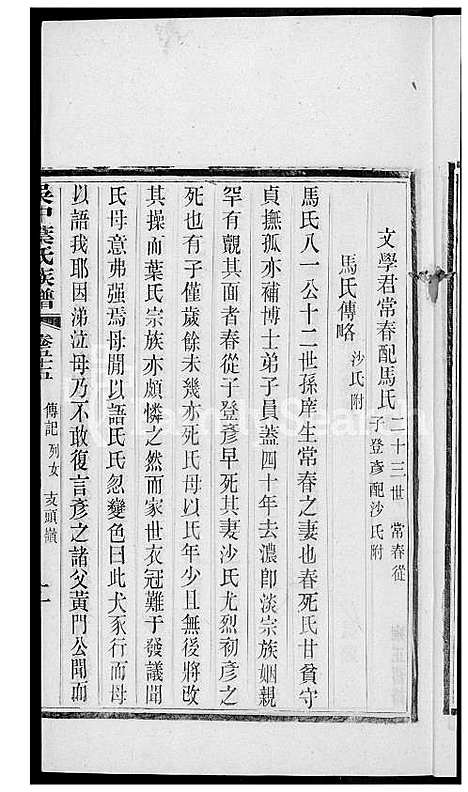 文學君常春配馬氏 二十三世 常春從
子登彥配沙氏附
馬氏傳略 沙氏附
馬氏八一公十二世孫庠生常春之妻也春死氏甘貧守
貞撫孤亦補博士弟子員蓋四十年去濃卽淡宗族姻親
罕有覿其面者春從子登彥早死其妻沙氏尤烈初彥之
死也有子僅歲餘未幾亦死氏母以氏年少且無後將改
其操而葉氏宗族亦頗憐之然而家世衣冠難于發議聞
氏母意弗强焉母閒以語氏氏忽變色曰此犬豕行而母
以語我耶因涕泣母乃不敢復言彥之諸父黃門公聞而
吳中葉氏族譜 卷五十五 傳記 列女 支頭嶺